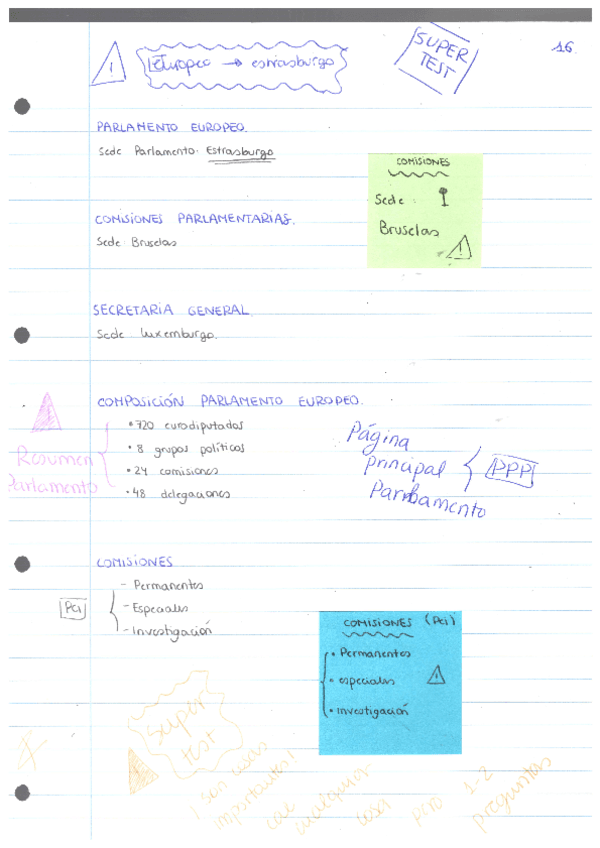 !
Europeo → estrasburgo
SUPER
TEST
16
PARLAMENTO EUROPEO.
Sede Parlamento: Estrasburgo
COMISIONES
Sede:
Bruselas
!
COMISIONES PARLAMENTARIAS.
Sede Bruselas
SECRETARÍA GENERAL.
Sede Luxemburgo.
COMPOSICIÓN PARLAMENTO EUROPEO.
•720 eurodiputados
•8 grupos políticos
•24 comisiones
•48 delegaciones
Resumen
Parlamento
Página
principal
Parlamento
PPP
COMISIONES
- Permanentes
- Especiales
- Investigación
Pei
COMISIONES (Pei)
• Permanentes
• especiales
• investigación
!
Super
test
! son cosas
importantes!
cae
cualquier
cosa
pero
1-2
preguntas